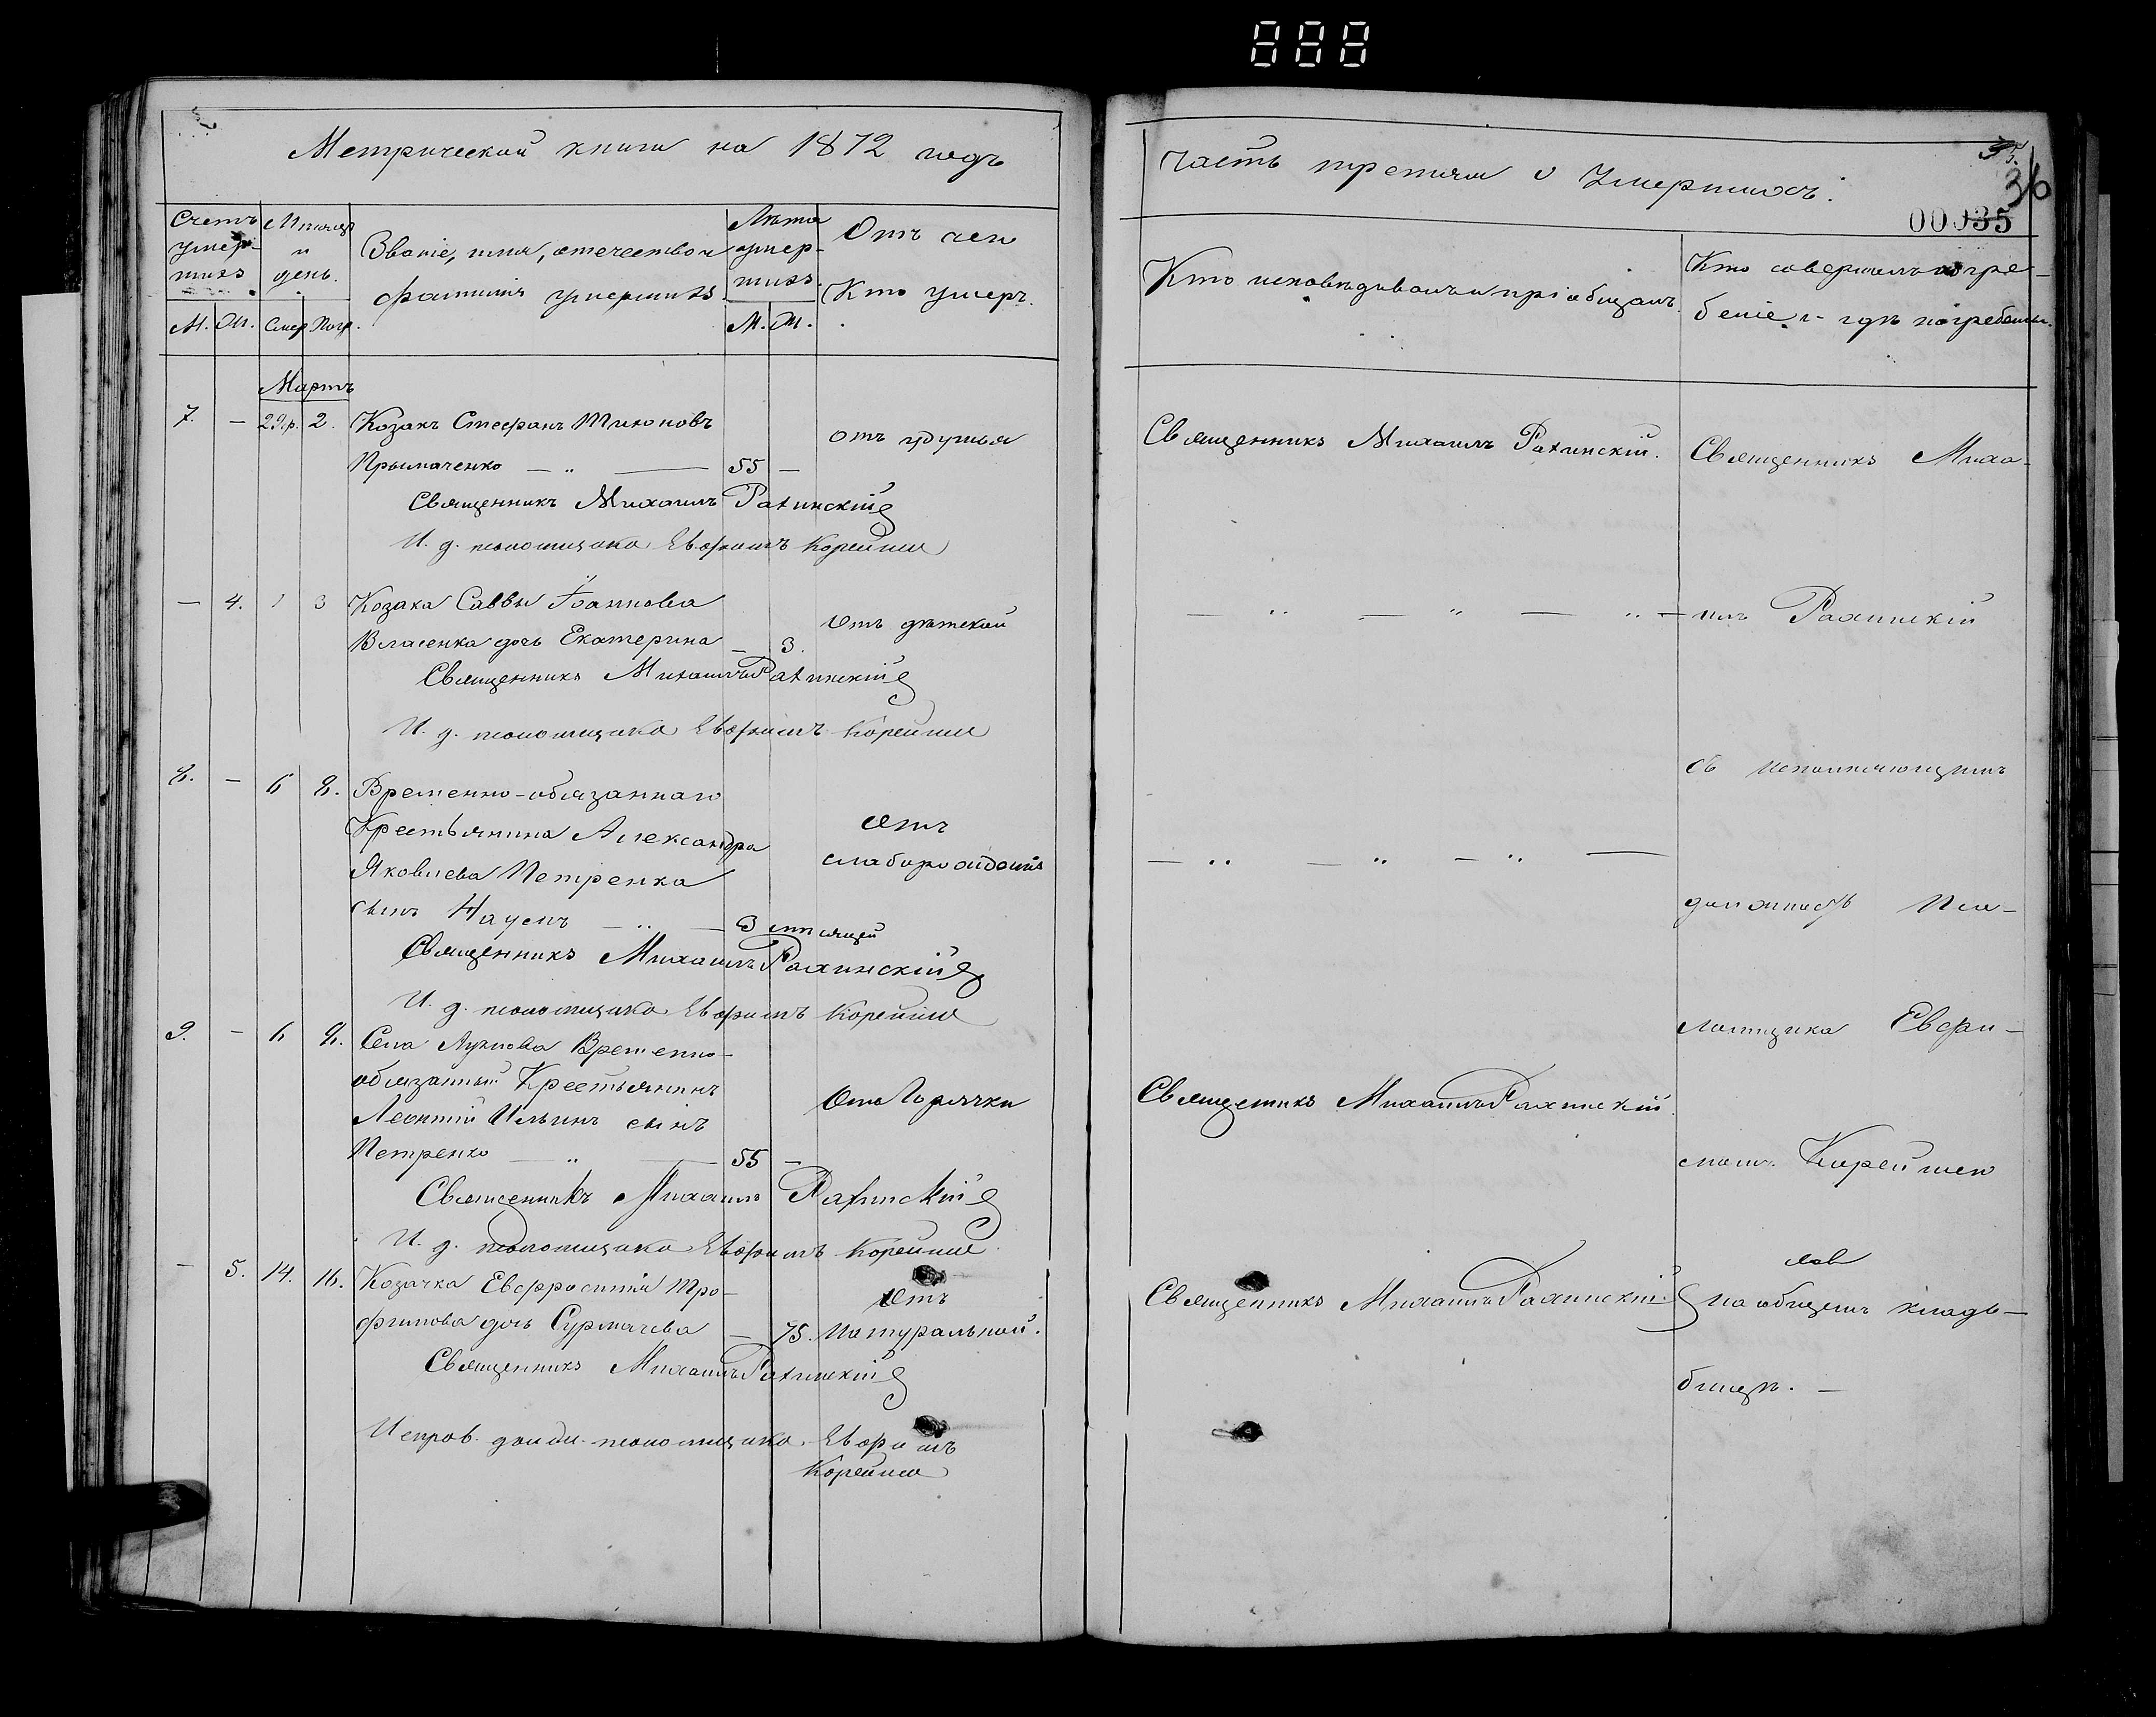 888
Метрической книги на 1872 годъ
Счетъ умер- шихъ
Мѣсяцъ и день.
Званіе, имя, отечество и
фамилія умершихъ
Лѣта умер- шихъ.
Отъ чего
Кто умеръ.
М. Ж. Смер. Погр. М. Ж.
Мартъ
7. — 29ф. 2. Козакъ Стефанъ Тихоновъ
Прымаченко — „ — 55 —
отъ удушья
Священникъ Михаилъ Рахинскій
И. д. псаломщика Евфимъ Корейша
— 4. 1 3 Козака Саввы Іоаннова
Власенка дочь Екатерина — 3.
Отъ дѣтской
Священникъ Михаилъ Рахинскій
И. д. псаломщика Евфимъ Корейша
8. — 6 8. Временно-обязаннаго
Крестьянина Александра
Яковлева Петренка
сынъ Наумъ — „ — 3 мѣсяцей
Отъ
слаборожденія
Священникъ Михаилъ Рахинскій
И. д. псаломщика Евфимъ Корейша
9. — 6 8. Села Временно-
обязанный Крестьянинъ
Леонтій Ильинъ сынъ
Петренко — „ — 55 —
Отъ Горячки
Священникъ Михаилъ Рахинскій
И. д. псаломщика Евфимъ Корейша
— 5. 14. 16. Козачка Евфросинія Тро-
фимова дочь Сурмачева — 75.
Отъ
натуральной.
Священникъ Михаилъ Рахинскій
Исправ. должн. псаломщика Евфимъ
Корейша
часть третія о Умершихъ.
35.
36
00035
Кто исповѣдывалъ и пріобщалъ.
Кто совершалъ погре-
беніе и гдѣ погребены.
Священникъ Михаилъ Рахинскій.
— „ — „ — „ —
— „ — „ — „ —
Священникъ Михаилъ Рахинскій.
Священникъ Михаилъ Рахинскій.
Священникъ Миха-
илъ Рахинскій
съ исполняющимъ
должность Пса-
ломщика Евфи-
момъ Корейшею
на общемъ кладь-
бищѣ. —